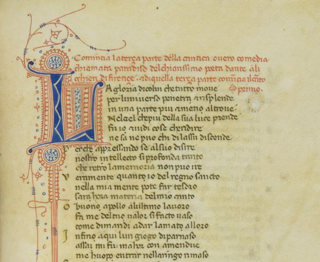 Comincia la terça parte della cantica overo comedia
chiamata paradiso del chiarissimo poeta dante ali
ghieri di firençe. Et di quella terça parte comincia il canto
primo.
La gloria di colui che tutto move
per luniverso penetra e risplende
in una parte piu e meno altrove
Nel ciel che piu della sua luce prende
fu io e vidi cose che ridire
ne sa ne puo chi di lassu discende
Perche appressando se al suo disire
nostro intelletto si profonda tanto
che retro la memoria non puo ire
Veramente quanto io del regno sancto
nella mia mente pote far tesoro
sara hora materia del mio canto
O buono apollo all ultimo lavoro
fa me del tuo valor si facto vaso
come dimandi a dar lamato alloro
Infino a qui lun giogo di parnaso
assai mi fu ma hor con amendue
me huopo entrar nellaringo rimaso